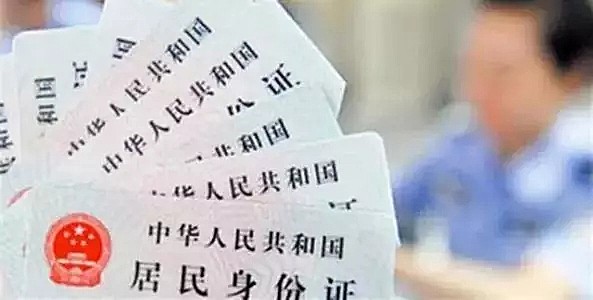 中华人民共和国
中华人民共和国
份证
人民共和国
中华人民共和国
证
中华人民共和国
居民身份证